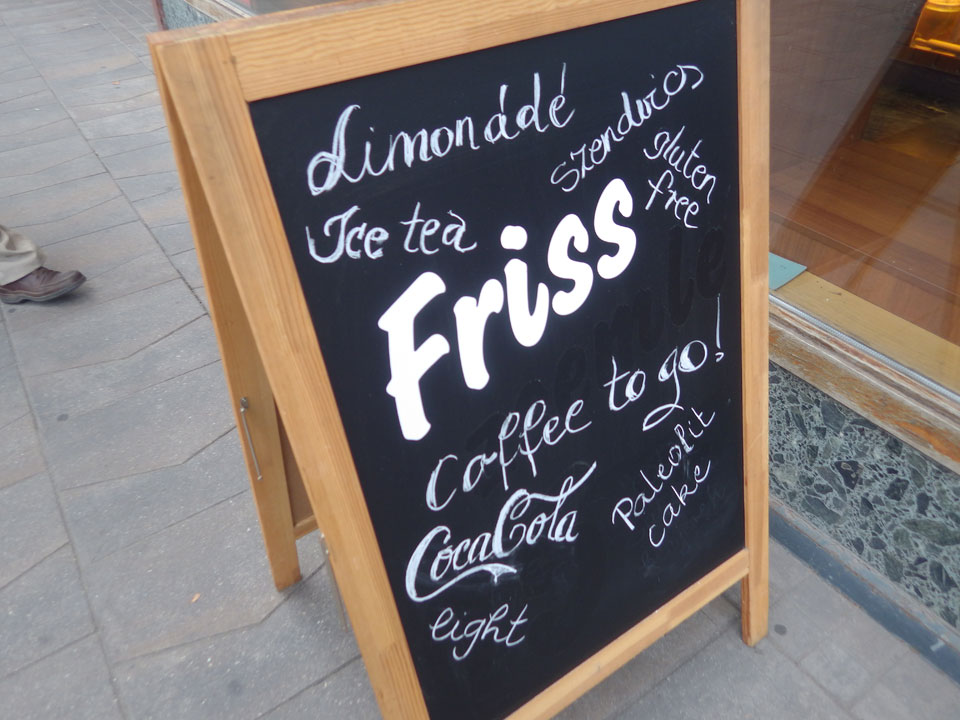 Limonádé
Szendvics
gluten
free
Ice tea
Friss
Coffee to go!
Paleolit
cake
CocaCola
light